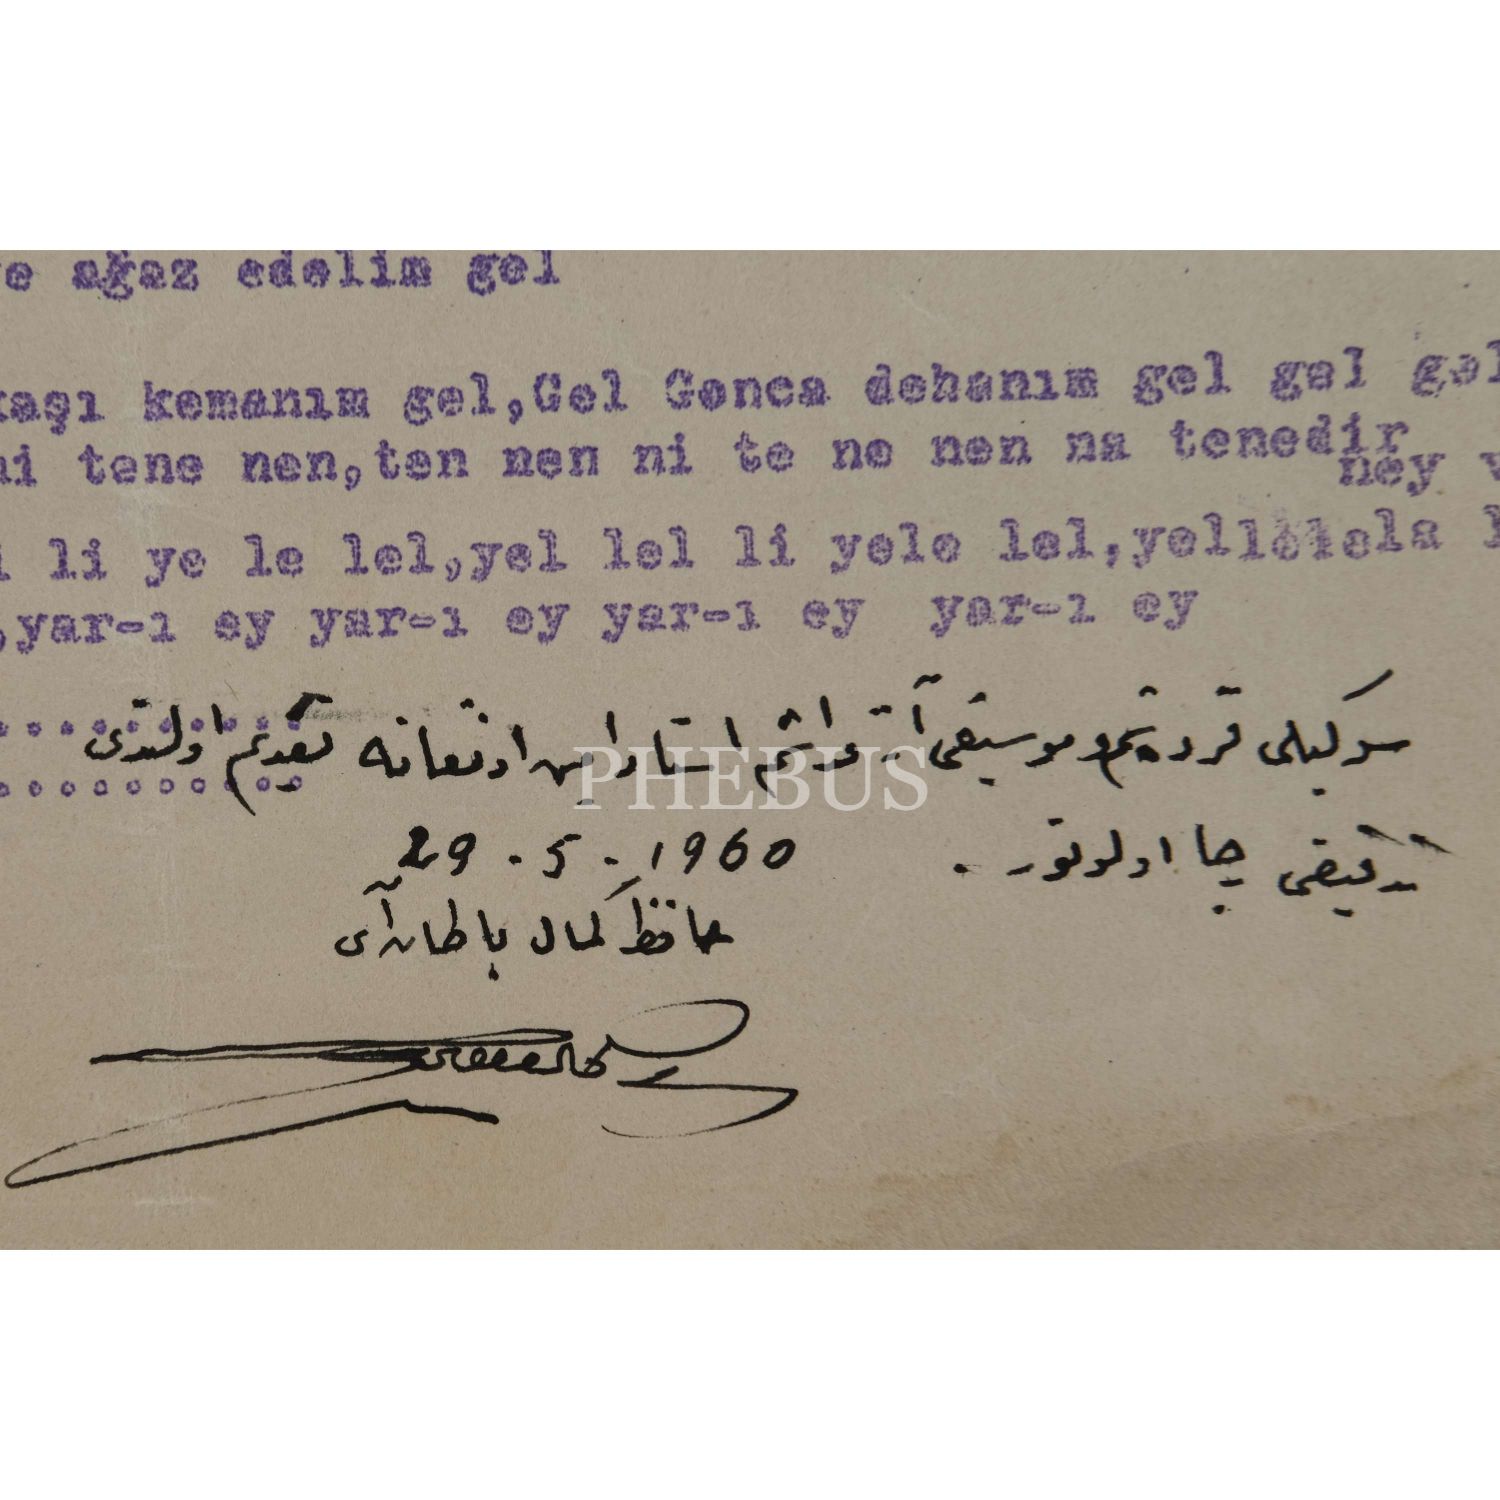 e ağaz edelim gel
kaşı kemanım gel,Gel Gonca dehanım gel gel gel
ni tene nen,ten nen ni te ne nen na tenedir
ney
li ye le lel,yel lel li yele lel,yellelela
,yar-ı ey yar-ı ey yar-ı ey yar-ı ey
سوكيلى قرده شم و موسيقى آرقداشم استاد تقديم اولندى
تدقيقى رجا اولونور .
29 . 5 . 1960
حافظ كمال باطاناى
PHEBUS